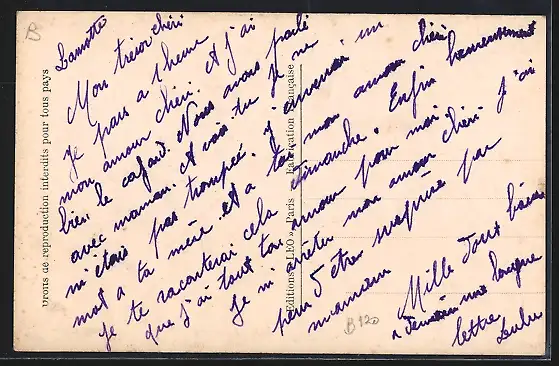 B
Lamotte
Mon trésor chéri
Je pars a l'heure
mon amour chéri. et j'ai
bien le cafard. Nous avons parlé
avec maman. et vois-tu je ne
m'étais pas trompée. J'ai un
mot a ta mère et a toi mon amour chéri
je te raconterai cela dimanche. Enfin heureusement
que j'ai tout ton amour pour moi
Je m'arrête mon amour chéri j'ai
peur d'etre surprise par
maman
Mille doux baisers
a demain une longue
lettre
Lulu
B120
Droits de reproduction interdits pour tous pays
Editions « LEO » Paris Fabrication Française